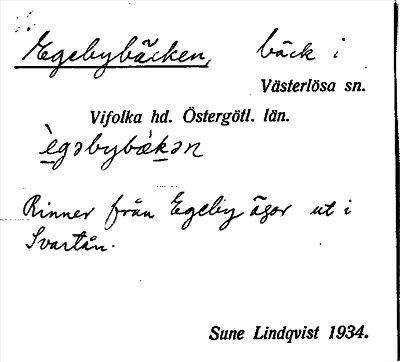 Egebybäcken, bäck i
Västerlösa sn.
Vifolka hd. Östergötl. län.
ègəbybæ̀kən
Rinner från Egeby ägor ut i
Svartån.
Sune Lindqvist 1934.